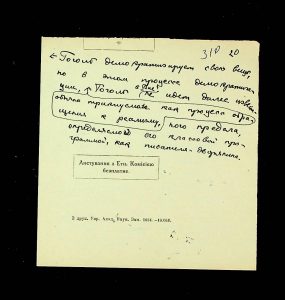 31⁰ 20
Гоголь демократизирует свою выщу,
но в этом процессе демократиза-
ции, Гоголь в "Вие" идет далее извес-
обычно припускове как процесс обра-
щения к реализму, кого предела,
определяемого его классовой про-
граммой, как писателя-дворянина.
Листування з Етн. Комісією
безплатне.
З друк. Укр. Акад. Наук. Зам. 1634.